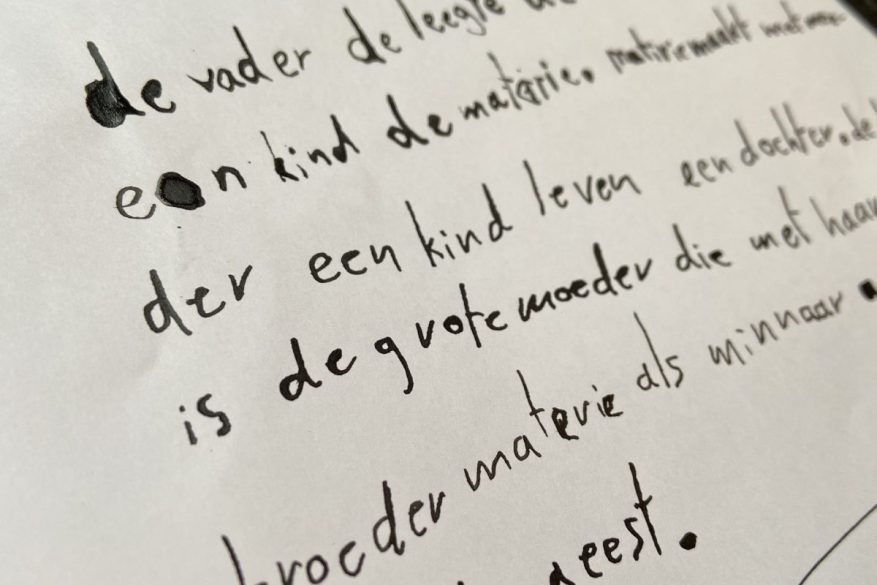 de vader de leegte
een kind de materie. materie maakt met
der een kind leven een dochter. de
is de grote moeder die met haar
broeder materie als minnaar
geest.